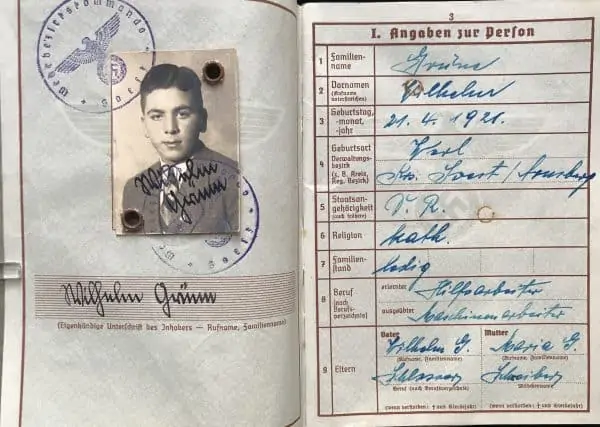 Wehrbezirkskommando
Soest
Wilhelm
Grüne
Wilhelm Grüne
(Eigenhändige Unterschrift des Inhabers — Rufname, Familienname)
3
I. Angaben zur Person
1 Familien-
name
Grüne
2 Vornamen
(Rufname
unterstreichen)
Wilhelm
3 Geburtstag,
-monat,
-jahr
21. 4. 1921.
4 Geburtsort
Verwaltungs-
bezirk
(z. B. Kreis,
Reg. Bezirk)
Werl
Krs. Soest / Arnsberg
5 Staatsan-
gehörigkeit
(auch frühere)
D. R.
6 Religion
kath.
7 Familien-
stand
ledig
8 Beruf
(nach
Berufs-
verzeichnis)
erlernter
Hilfsarbeiter
ausgeübter
Maschinenarbeiter
9 Eltern
Vater
Mutter
Wilhelm G.
Maria G.
(Rufname, Familienname)
(Rufname, Familienname)
Schlosser
Beruf (nach Berufsverzeichnis)
Mädchenname
(wenn verstorben: † und Sterbejahr)
(wenn verstorben: † und Sterbejahr)